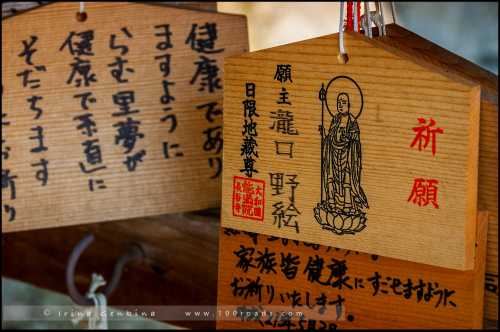 健康であり
ますように
らむ里夢が
健康で素直に
そだちます
祈り
祈願
願主 瀧口 野絵
日限地蔵尊
大和國
長谷寺
家族皆健康にすごせますように
お祈りいたします。
© Irina Denbina www.100roads.com